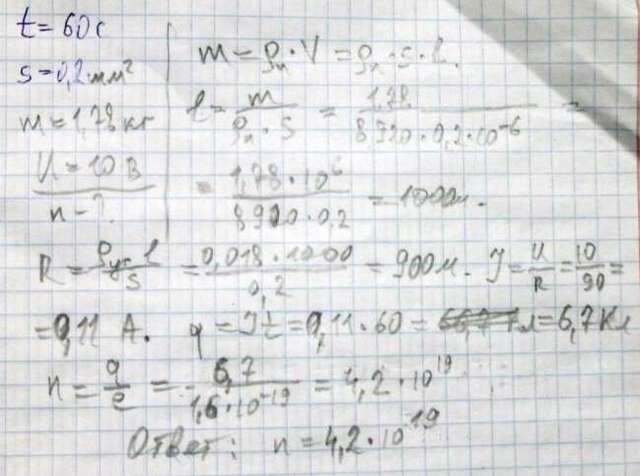 t = 60 с
S = 0,2 мм²
m = 1,78 кг
U = 10 В
n - ?
m = ρп · V = ρп · S · l.
l = m / (ρп · S) = 1,78 / (8920 · 0,2 · 10⁻⁶) =
= 1,78 · 10⁶ / (8920 · 0,2) = 1000 м.
R = ρуд l / S = 0,018 · 1000 / 0,2 = 90 Ом. J = U / R = 10 / 90 =
= 0,11 А. q = Jt = 0,11 · 60 = 6,7 Кл
n = q / e = 6,7 / (1,6 · 10⁻¹⁹) = 4,2 · 10¹⁹
Ответ: n = 4,2 · 10¹⁹